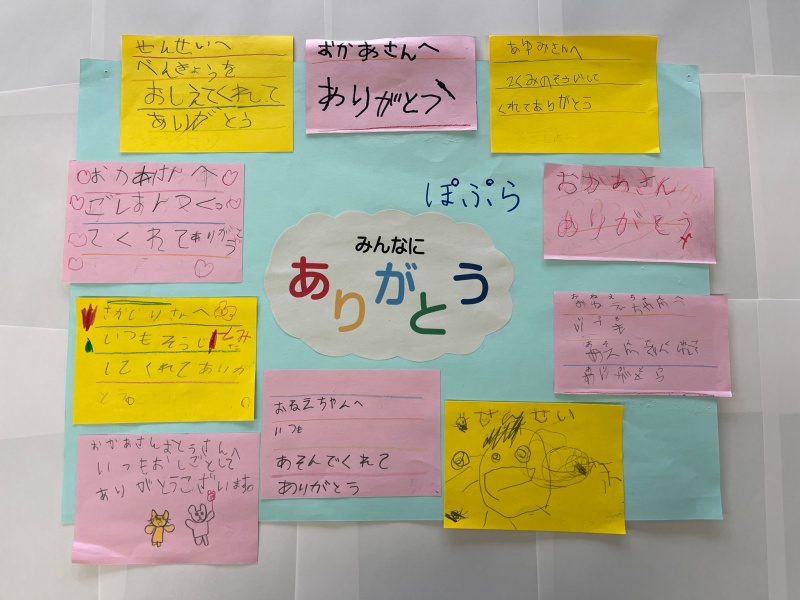 せんせいへ
べんきょうを
おしえてくれて
ありがとう
おかあさんへ
ありがとう
あゆみさんへ
くみのそうじして
くれてありがとう
おかあさんへ
ごはんつくっ
てくれてありがとう
ぽぷら
みんなに
ありがとう
おかあさん
ありがとう
さんへ
いつもそうじ
してくれてありが
とう
おねえちゃんへ
いつも
あそんでくれて
ありがとう
おねえちゃんへ
いつも
ありがとう
おかあさんおとうさんへ
いつもおしごとして
ありがとうございます。
せんせい